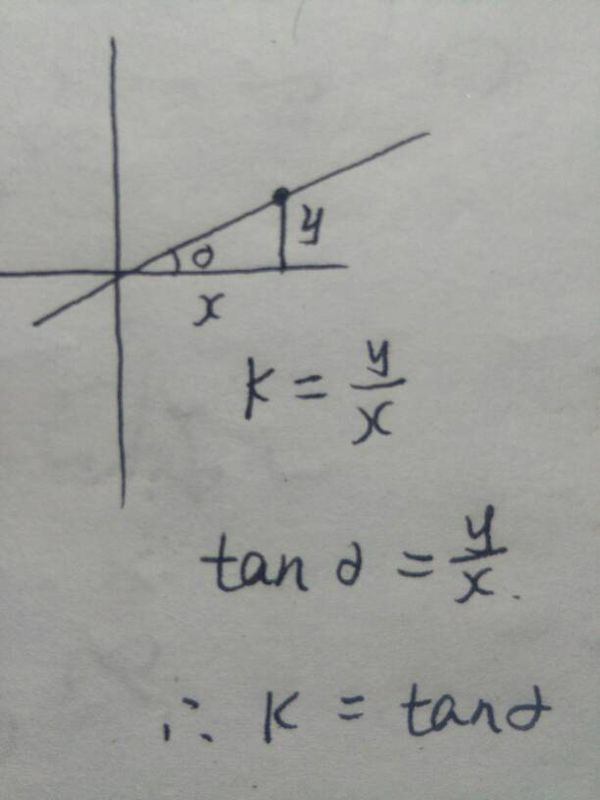 y
α
x
K = y/x
tan α = y/x.
∴ K = tan α